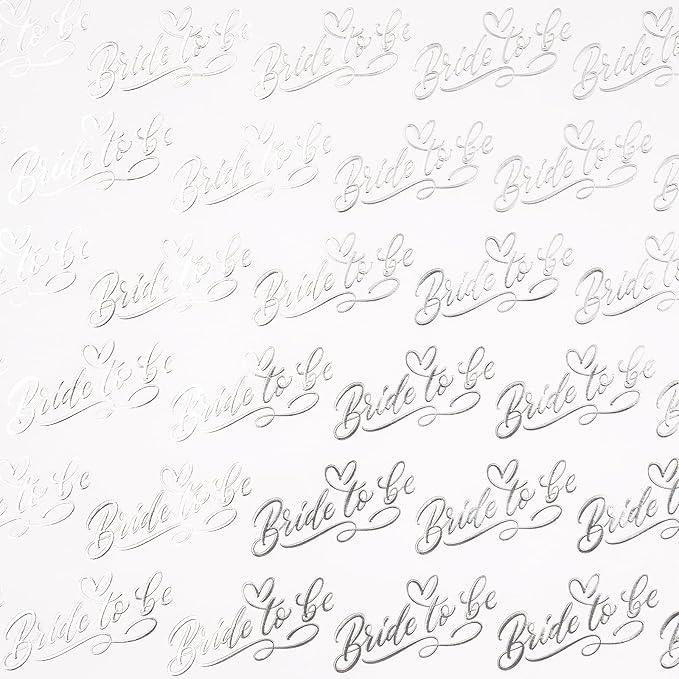 to be Bride to be Bride to be Bride to be Bride to
Bride to be Bride to be Bride to be Bride to be
to be Bride to be Bride to be Bride to be Bride to
Bride to be Bride to be Bride to be Bride to be
to be Bride to be Bride to be Bride to be Bride to
Bride to be Bride to be Bride to be Bride to be